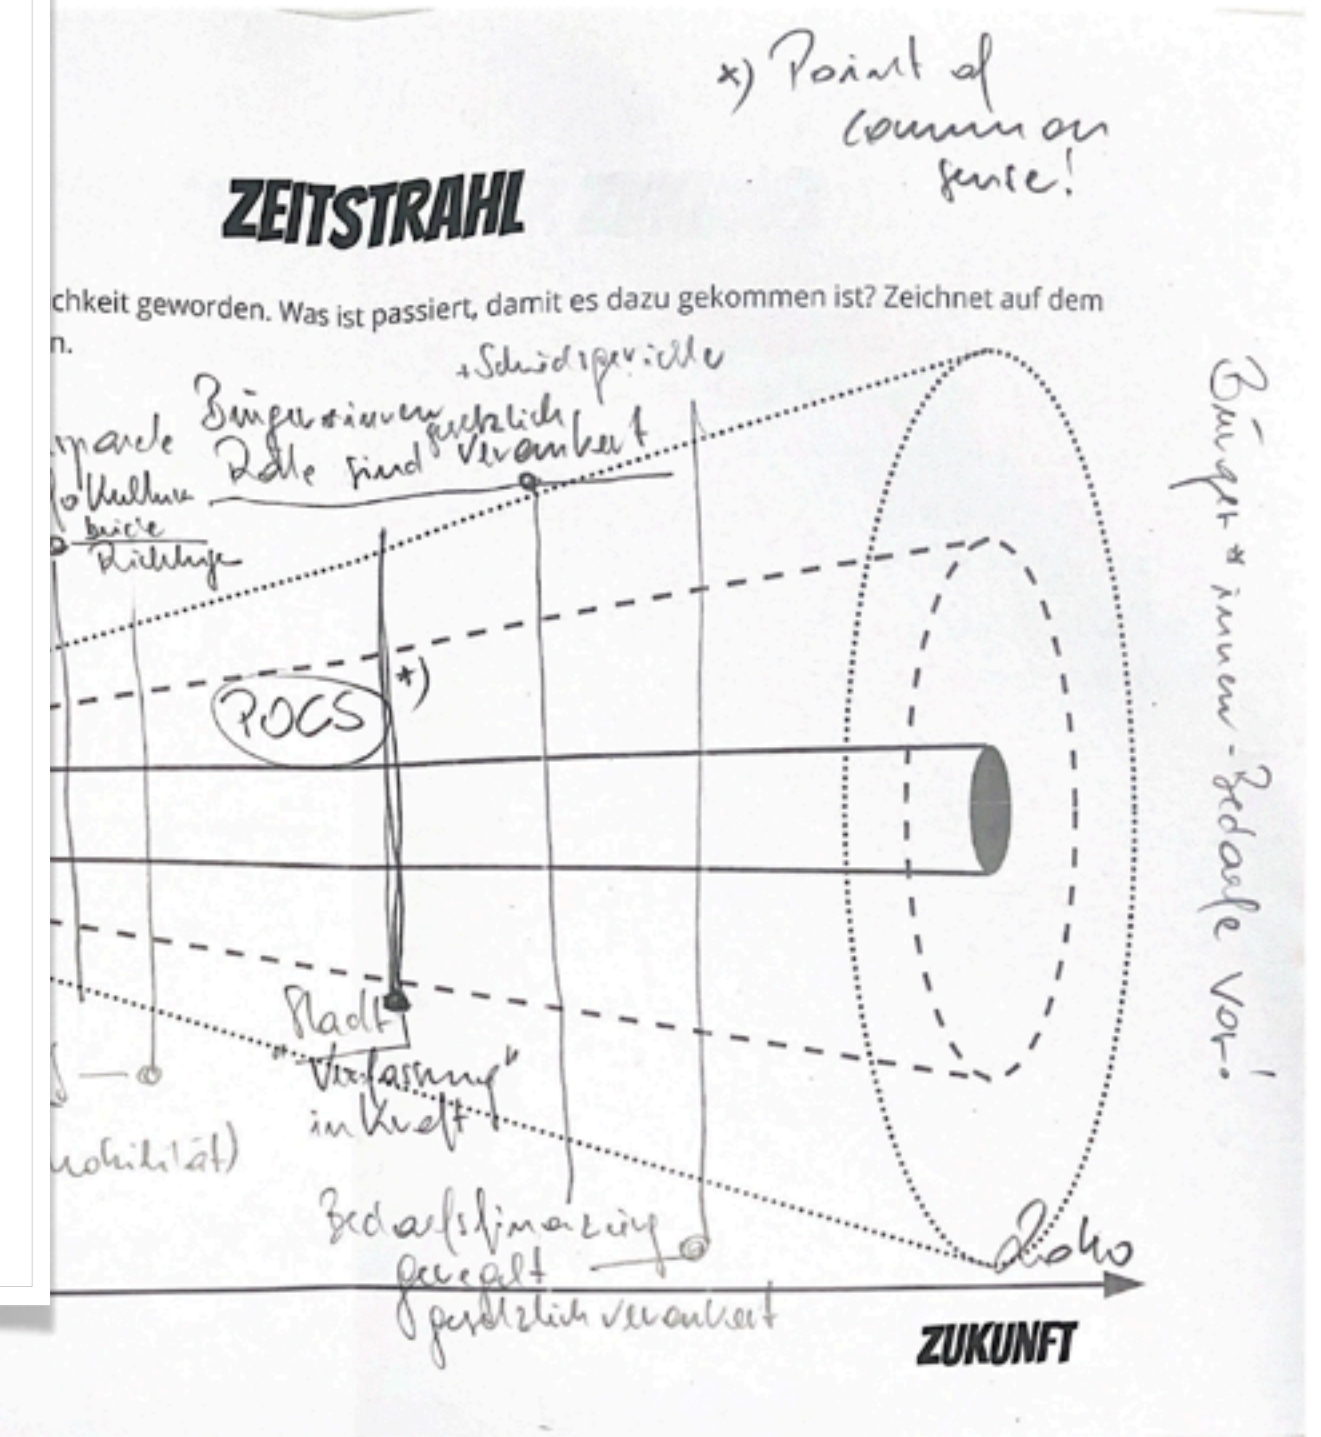 *) Point of
common
sense!
ZEITSTRAHL
chkeit geworden. Was ist passiert, damit es dazu gekommen ist? Zeichnet auf dem
n.
+ Schiedsgerichte
Bürger*innen gesetzlich
Rolle sind verankert
Kultur
beide
POCS
*)
Stadt
"Verfassung"
in Kraft
Bedarfsfinanzierung
geregelt
gesetzlich verankert
mobilität)
Bürger*innen-Bedarfe vor!
ZUKUNFT